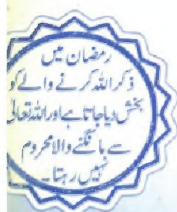 رمضان میں
ذکر اللہ کرنے والے کو
بخش دیا جاتا ہے اور اللہ تعالیٰ
سے مانگنے والا محروم
نہیں رہتا۔